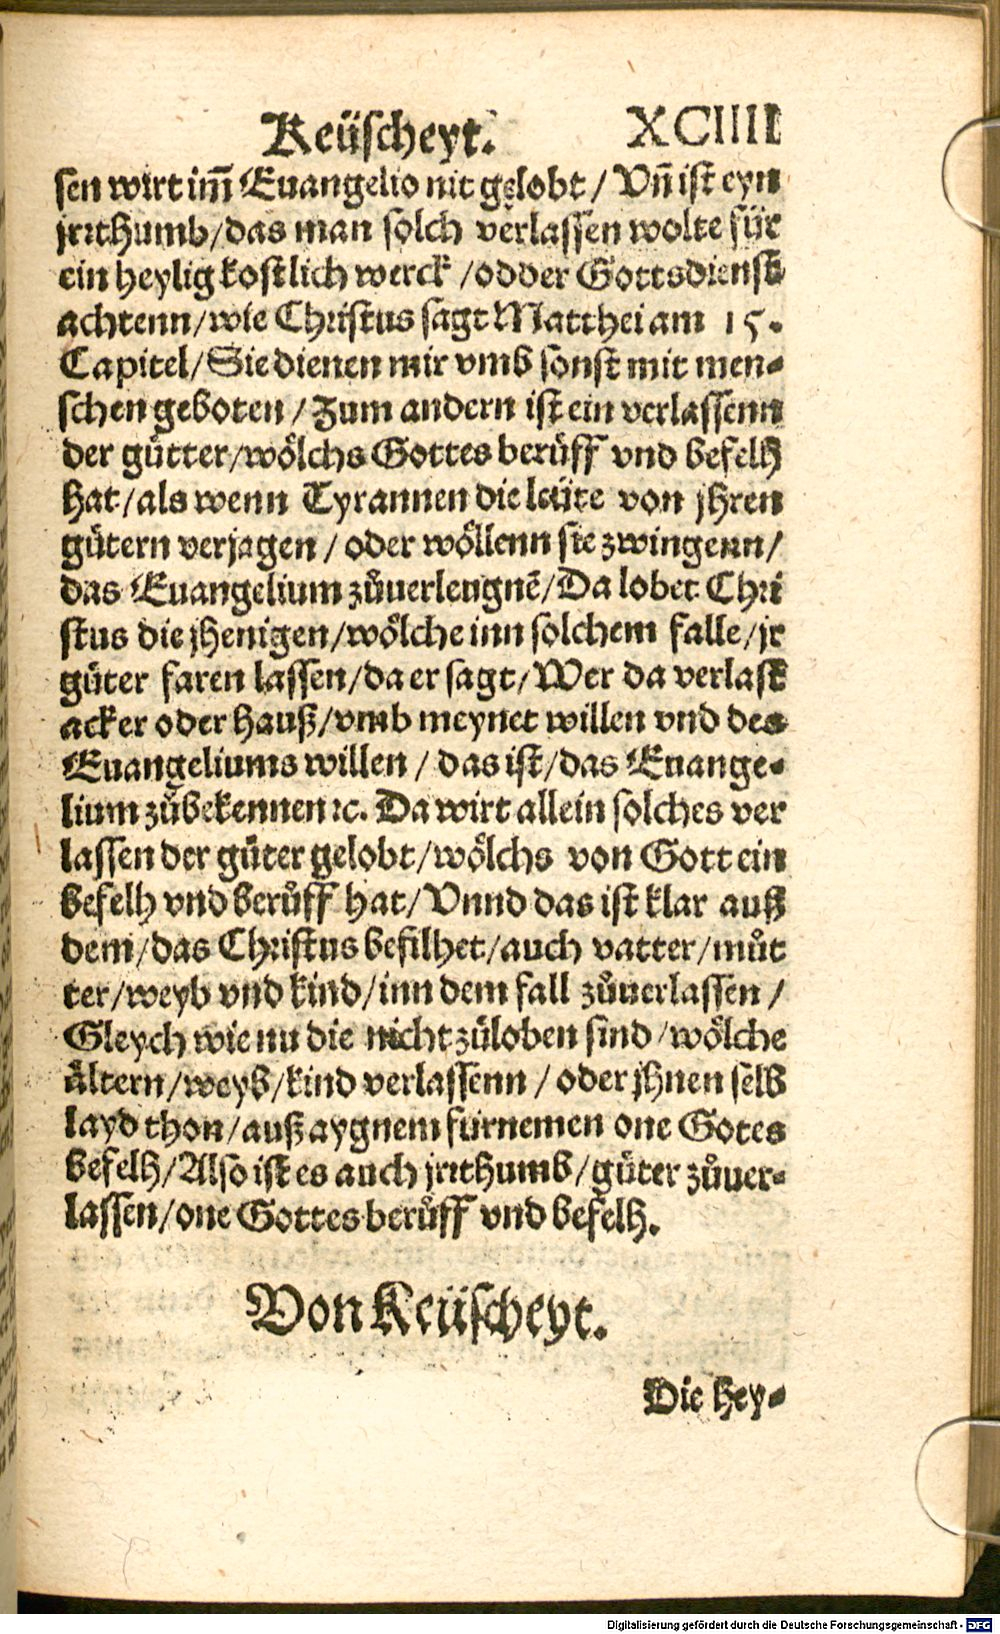 Keüscheyt. XCIIII
sen wirt im̃ Euangelio nit gelobt / Vñ ist eyn
jrrthumb/das man solch verlassen wolte für
ein heylig kostlich werck /odder Gottsdienst
achtenn/wie Christus sagt Matthei am 15.
Capitel/Sie dienen mir vmb sonst mit men-
schen geboten /Zum andern ist ein verlassenn
der gütter/wölchs Gottes berüff vnd befelh
hat/als wenn Tyrannen die leüte von jhren
gütern verjagen / oder wöllenn sie zwingenn/
das Euangelium zůuerlengnẽ/Da lobet Chri
stus die jhenigen/wölche inn solchem falle/jr
güter faren lassen/da er sagt/Wer da verlast
acker oder hauß/vmb meynet willen vnd des
Euangeliums willen / das ist/das Euange-
lium zůbekennen ꝛc. Da wirt allein solches ver
lassen der güter gelobt/wölchs von Gott ein
befelh vnd berůff hat/Vnnd das ist klar auß
dem/das Christus befilhet/auch vatter/můt
ter/weyb vnd kind/inn dem fall zůuerlassen /
Gleych wie nu die nicht zůloben sind/wölche
ältern/weyb/kind verlassenn / oder jhnen selb
layd thon/auß aygnem fürnemen one Gotes
befelh/Also ist es auch jrrthumb/güter zůuer-
lassen/one Gottes berůff vnd befelh.
Von Keüscheyt.
Die hey-
Digitalisierung gefördert durch die Deutsche Forschungsgemeinschaft - DFG